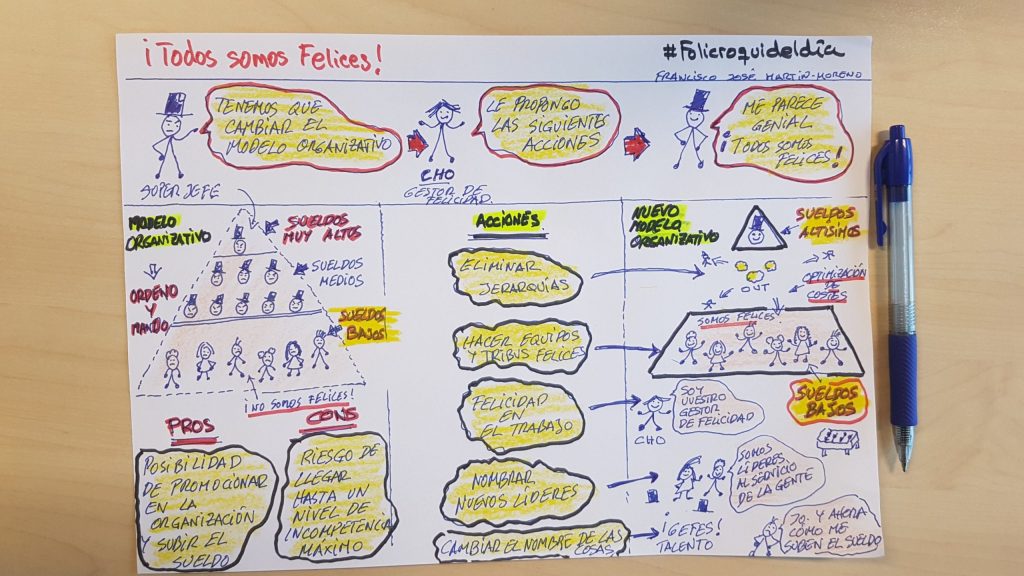 ¡Todos somos Felices!
#Folicroquideldía
FRANCISCO JOSÉ MARTÍN-MORENO
TENEMOS QUE
CAMBIAR EL
MODELO ORGANIZATIVO
SUPER JEFE
CHO
GESTOR DE
FELICIDAD.
LE PROPONGO
LAS SIGUIENTES
ACCIONES
ME PARECE
GENIAL
¡TODOS SOMOS
FELICES!
MODELO
ORGANIZATIVO
ORDENO
Y
MANDO
SUELDOS
MUY ALTOS
SUELDOS
MEDIOS
SUELDOS
BAJOS
¡NO SOMOS FELICES!
PROS
POSIBILIDAD
DE PROMOCIONAR
EN LA
ORGANIZACIÓN
Y SUBIR EL
SUELDO
CONS
RIESGO DE
LLEGAR
HASTA UN
NIVEL DE
INCOMPETENCIA
MÁXIMO
ACCIONES
ELIMINAR
JERARQUÍAS
HACER EQUIPOS
Y TRIBUS FELICES
FELICIDAD
EN
EL TRABAJO
NOMBRAR
NUEVOS LÍDERES
CAMBIAR EL NOMBRE DE LAS
COSAS
NUEVO
MODELO
ORGANIZATIVO
SUELDOS
ALTÍSIMOS
OUT
OPTIMIZACIÓN
DE
COSTES
SOMOS FELICES
SUELDOS
BAJOS
CHO
SOY
VUESTRO
GESTOR
DE FELICIDAD
SOMOS
LÍDERES
AL SERVICIO
DE LA GENTE
¡GEFES!
TALENTO
JO. Y AHORA
CÓMO ME
SUBEN EL SUELDO